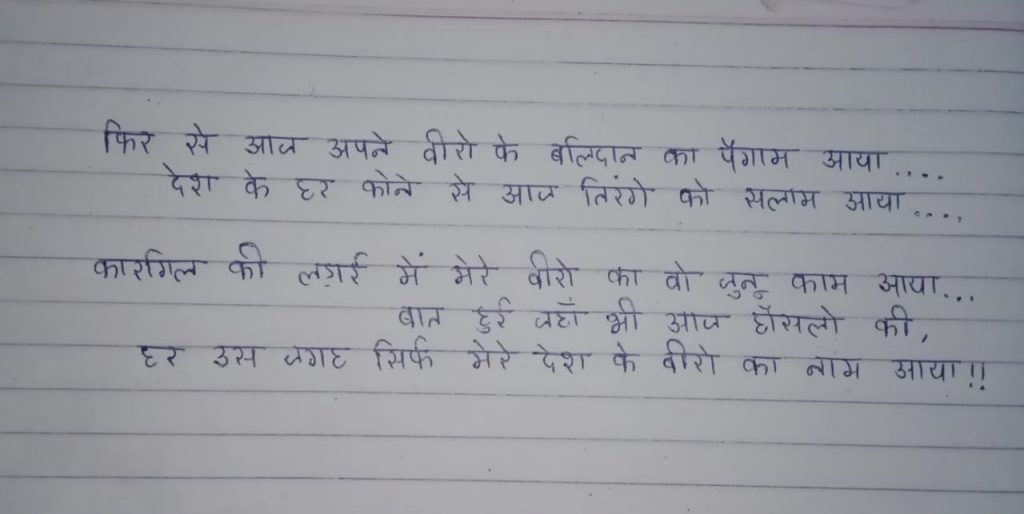 फिर से आज अपने वीरो के बलिदान का पैगाम आया....
देश के हर कोने से आज तिरंगे को सलाम आया....
कारगिल की लड़ाई में मेरे वीरो का वो जुनू काम आया...
बात हुई जहाँ भी आज हौसलो की,
हर उस जगह सिर्फ मेरे देश के वीरो का नाम आया!!